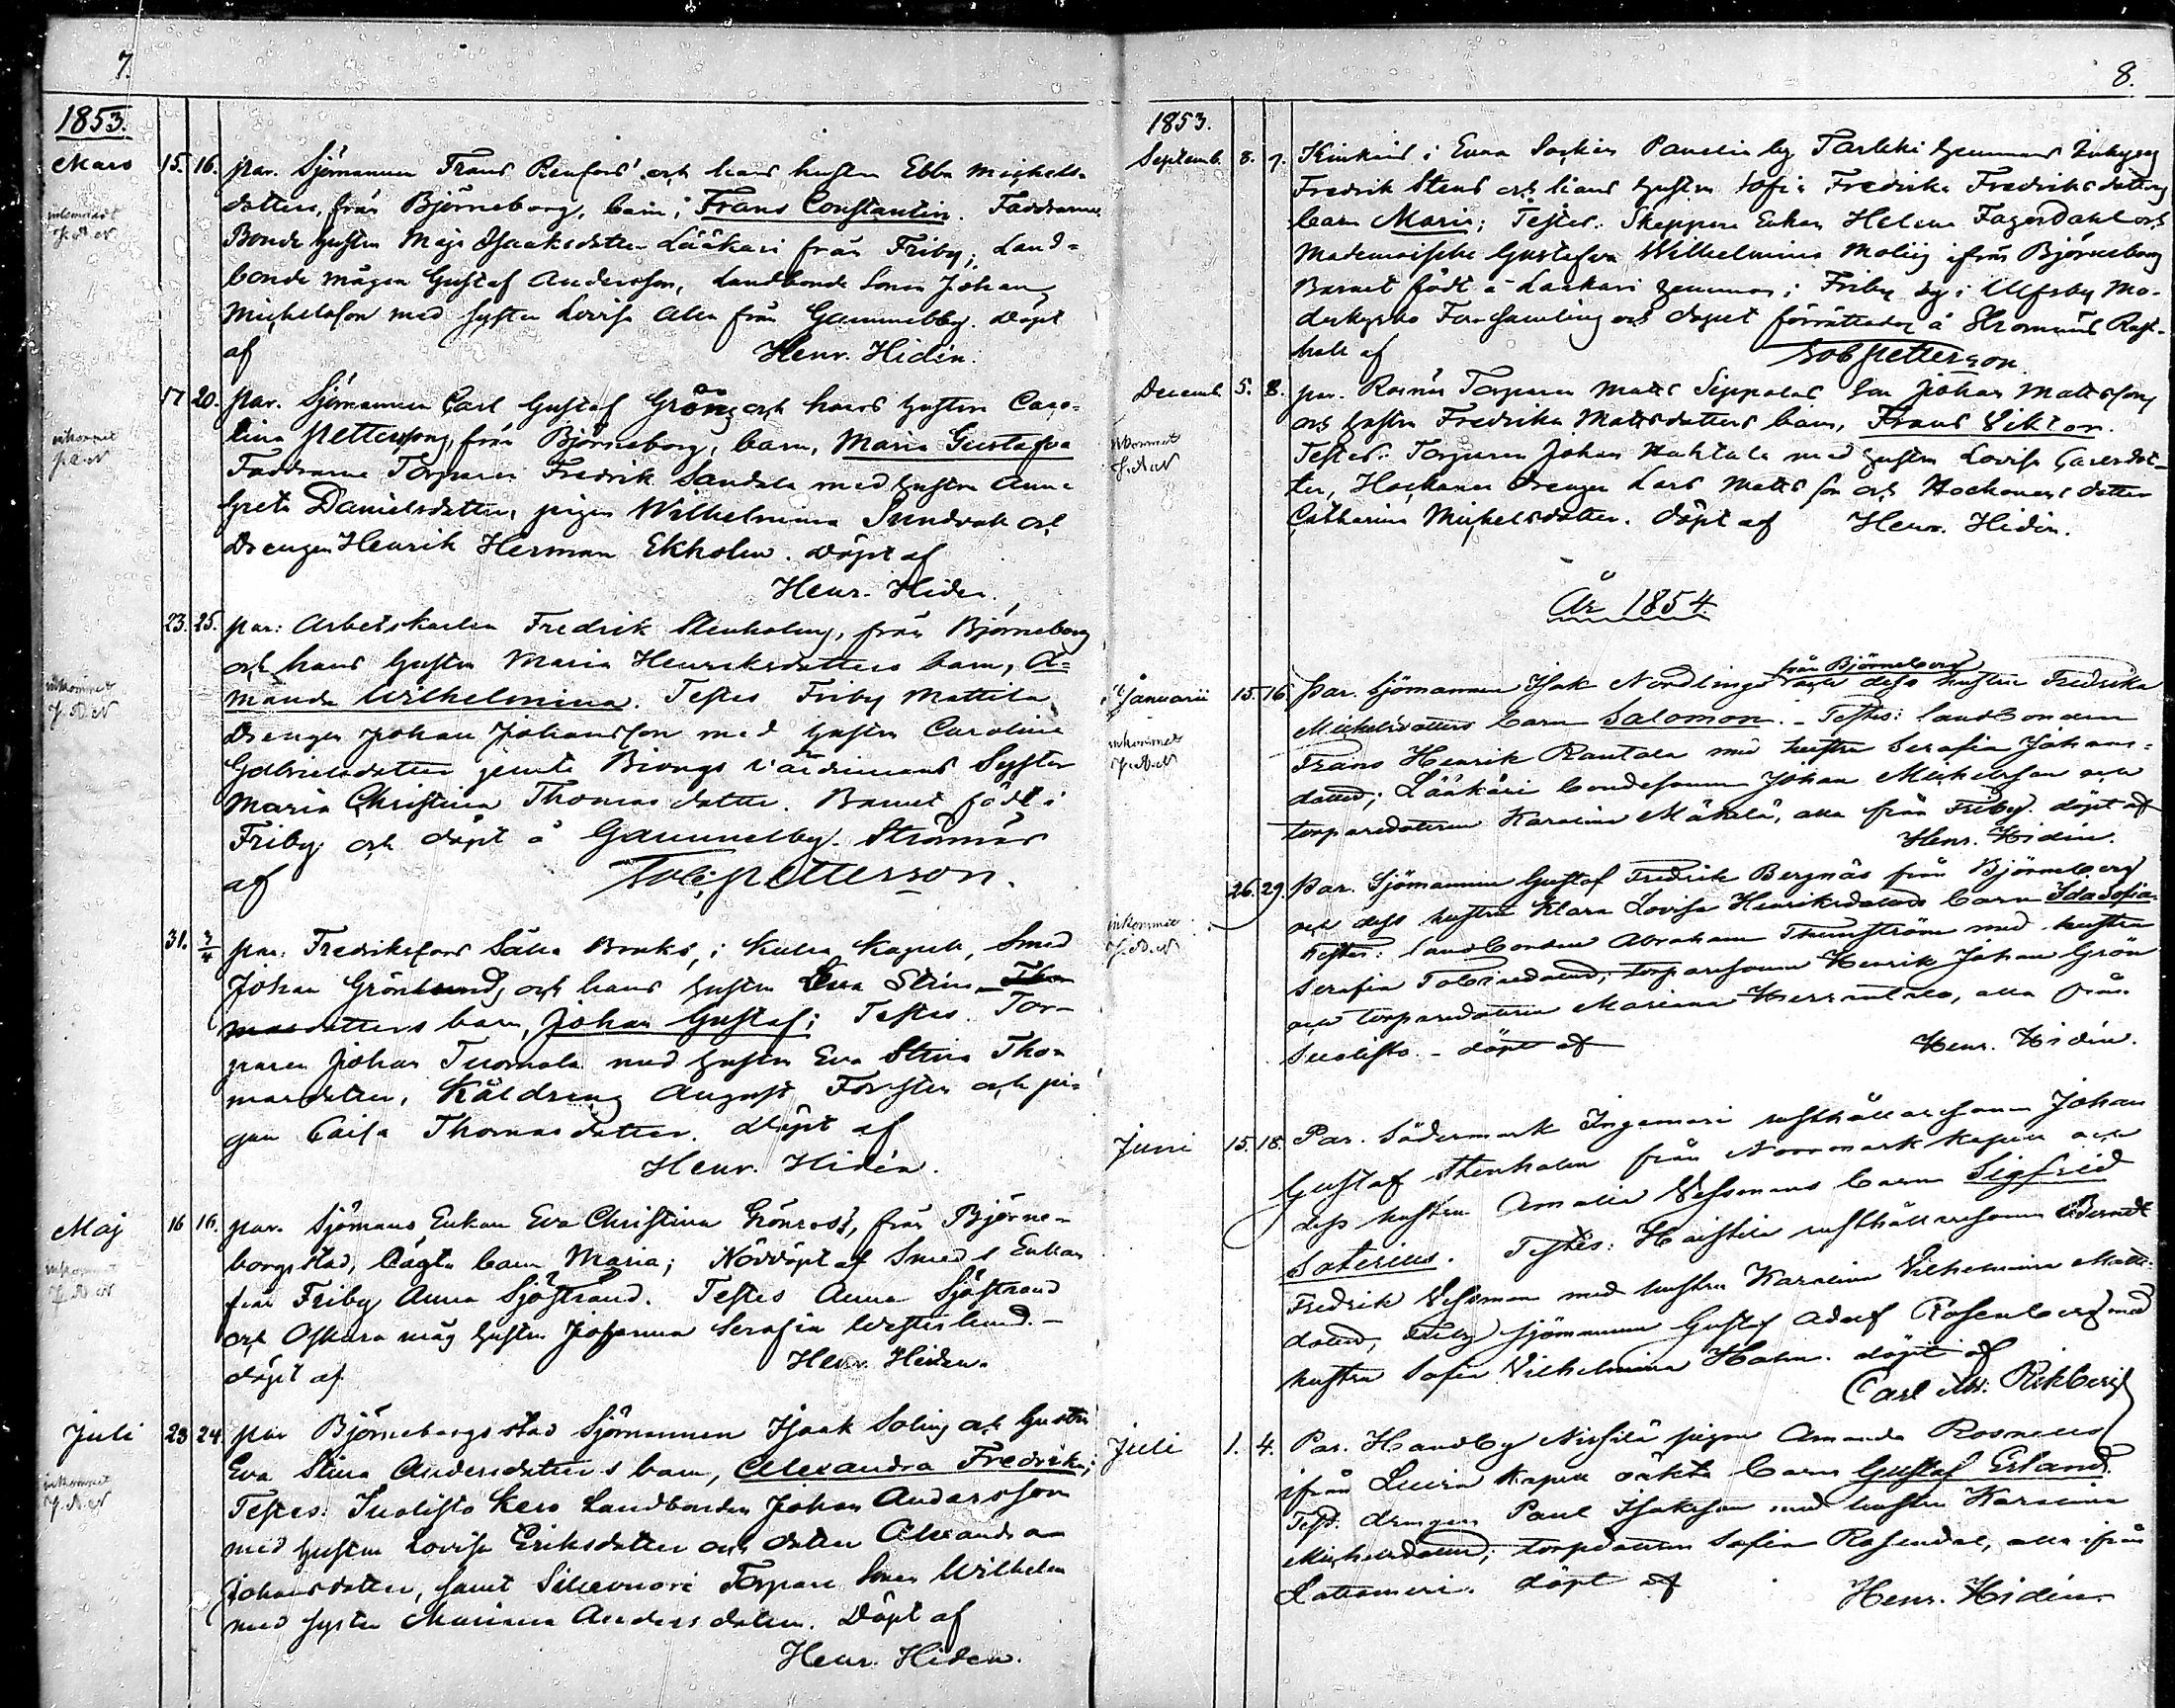 7.
1853.
Mars 15. 16. par. Sjömannen Frans Renfors' och hans hustru Ebba Michels-
dotters, från Björneborg, barn; Frans Constantin. Faddrarne
Bonde hustru Maja Isaaksdotter Lääkäri från Friby, Land-
bonde mågen Gustaf Andersson, Landbonde Sonen Johan
Michelsson med syster Lovisa alla från Gammelby. döpt
af Henr. Hidén.
17 20. par. Sjömannen Carl Gustaf Grön och hans hustru Caro-
lina Pettersson, från Björneborg, barn, Maria Gustafva
Faddrarne Torparen Fredrik Sandala med hustru Anna
Greta Danielsdotter, pigan Wilhelmina Sundvall och
Drengen Henrik Herman Ekholm. döpt af
Henr. Hiden.
23. 25. par: Arbetskarlen Fredrik Stenholm, från Björneborg
och hans hustru Maria Henriksdotters barn, A=
manda Wilhelmina. Testes Friby Mattila
Drengen Johan Johansson med hustru Carolina
Gabrielsdotter jemte Syster
Maria Christina Thomasdotter. Barnet födt i
Friby och döpt å Gammelby. Strömnäs
af Tob. Petterson.
31. 3/4 par: Fredriksfors Bruks, i Kapell, Smed
Johan Grönlund, och hans hustru Eva Stina Tho-
masdotters barn, Johan Gustaf; Testes. Tor-
paren Johan Tuomala med hustru Eva Stina Tho-
masdotter, Käldreng August Forsten och pi-
gan Caisa Thomasdotter. döpt af
Henr. Hidén.
Maj 16 16. par. Sjömans Enkan Eva Christina Grönroos, från Björne-
borgs stad, oägta barn Maria; Nöddöpt af Smeds Enkan
från Friby Anna Sjöstrand. Testes Anna Sjöstrand
och måg hustru Johanna Serafia Westerlund. –
döpt af Henr. Hiden.
Juli 23 24. par Björneborgs stad Sjömannen Isaak Soling och hustru
Eva Stina Andersdotters barn, Alexandra Fredrika;
Testes. Inalisto Kero Landbonden Johan Andersson
med hustru Lovisa Eriksdotter och dotter Alexandra
Johansdotter, samt Torpare Sonen Wilhelm
med syster Mariana Andersdotter. Döpt af
Henr. Hiden.
8.
1853.
Septemb. 3. 7. i Evra Socken Panelia by Tarkki hemmans Inhyses
Fredrik Stens och hans hustru Sofia Fredrika Fredriksdotters
barn Maria; Testes. Skeppare Enkan Helena Fagerdahl och
Mademoiselle Gustafva Wilhelmina Moliis ifrån Björneborg
Barnet födt å Lääkäri hemman i Friby by i Ulfsby Mo-
derkyrko Församling och dopet förrättades å Strömnäs Rust-
håll af Tob. Petterson.
Decemb. 5. 8. par. Rosnäs Torparen Matts Seppäläs Son Johan Mattsson
och hustru Fredrika Mattsdotters barn, Frans Viktor.
Testes. Torparen Johan Huhtala med hustru Lovisa
ter, Drengen Lars Mattsson och dotter
Catharina Michelsdotter. döpt af Henr. Hidén.
År 1854.
från Björneborg
Januarii 15. 16 Par. Sjömannen Isak Nordlings och dess hustru Fredrika
Michelsdotters barn Salomon. – Testes: landbonden
Frans Henrik Rantala med hustru Serafia Johans=
dotter; Lääkäri bondesonen Johan Michelsson och
torparedottren Karolina Mäkelä, alla från Friby. döpt af
Henr. Hidén.
26. 29. Par. Sjömannen Gustaf Fredrik Bergnäs från Björneborg
och dess hustru Klara Lovisa Henriksdotters barn Ida Sofia
Testes: landbonden Abraham Thunström med hustru
Serafia Tobiasdotter; torparesonen Henrik Johan Grön
och torparedottren Mariana, alla från
döpt af Henr. Hidén.
Juni 15. 18. Par. Södermark Ingemari rusthållaresonen Johan
Gustaf Stenholm från Norrmark Kapell och
dess hustru Amalia Vessmans barn Sigfrid
Soterius. Testes: Haistila rusthållaresonen Berndt
Fredrik Vessman med hustru Karolina Vilhelmina Matts-
dotter, Friby sjömannen Gustaf Adolf Rosenberg med
hustru Sofia Vilhelmina Hahn. döpt af
Carl
Juli 1. 4. Par. Handby pigan Amanda Rosnells
ifrån Luvia Kapell oäkta barn Gustaf Erland.
Test. drengen Paul Isaksson med hustru Karolina
Michelsdotter; torpdottren Sofia Rosendal, alla ifrån
Lattomeri. döpt af Henr. Hidén